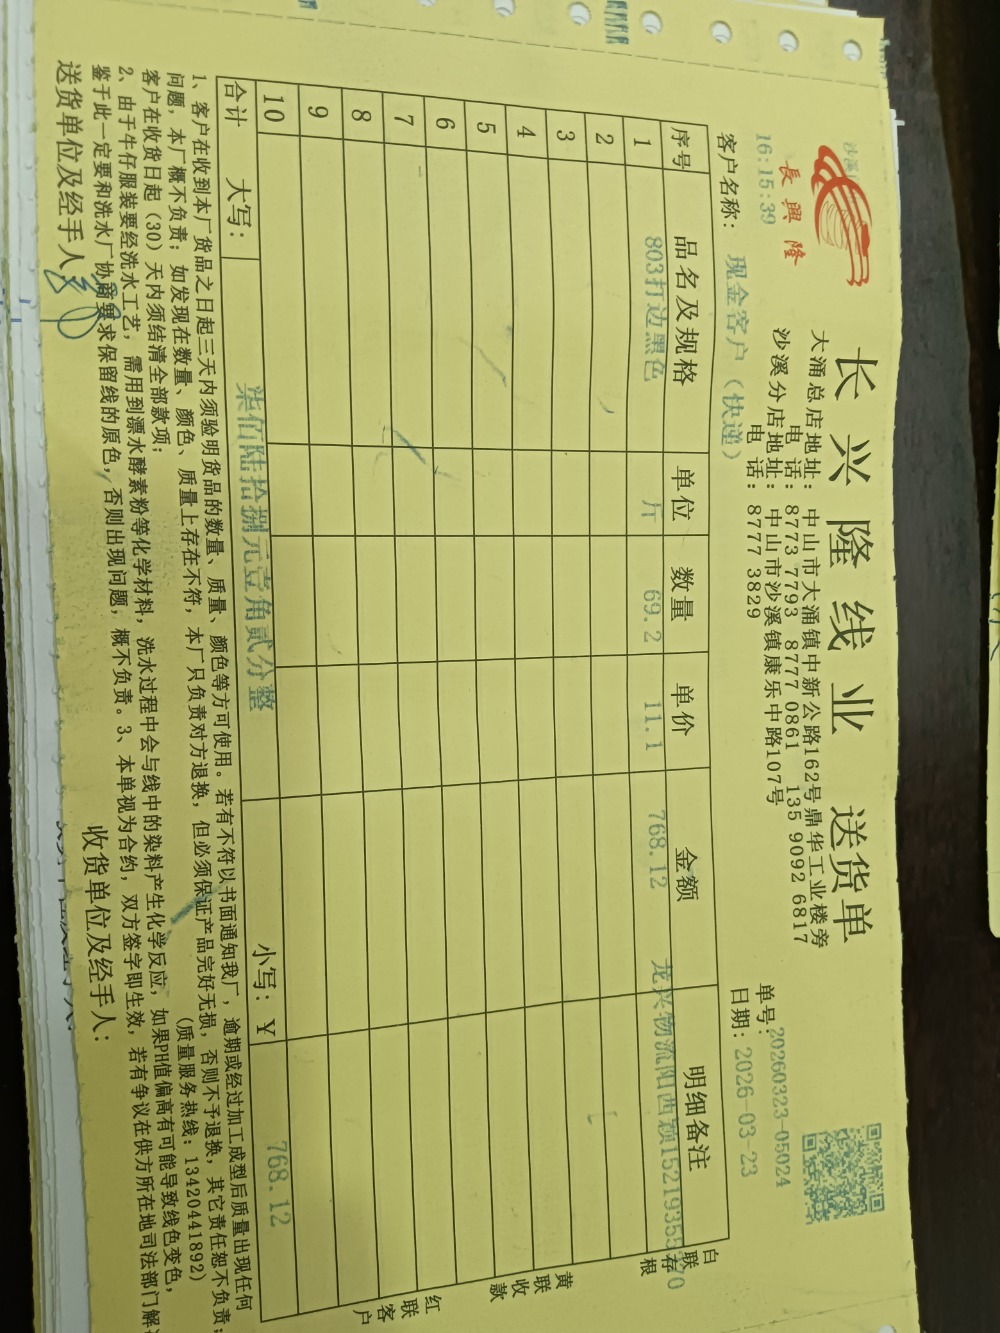 長興隆
长兴隆线业 送货单
大涌总店地址：中山市大涌镇中新公路162号鼎华工业楼旁
电 话：8773 7793 8777 0861 135 9092 6817
沙溪分店地址：中山市沙溪镇康乐中路107号
电 话：8777 3829
16:15:39
单号：20260323-05024
客户名称：现金客户（快递）
日期：2026-03-23
序号 品名及规格 单位 数量 单价 金额 明细备注
1 803打边黑色 斤 69.2 11.1 768.12 龙兴物流阳西颖
2
3
4
5
6
7
8
9
10
合计 大写：柒佰陆拾捌元壹角贰分整 小写：¥ 768.12
白联存根
黄联收款
红联客户
1、客户在收到本厂货品之日起三天内须验明货品的数量、质量、颜色等方可使用。若有不符以书面通知我厂，逾期或经过加工成型后质量出现任何
问题，本厂概不负责；如发现在数量、颜色、质量上存在不符，本厂只负责对方退换，但必须保证产品完好无损，否则不予退换，其它责任恕不负责；
客户在收货日起（30）天内须结清全部款项； （质量服务热线：13420441892）
2、由于牛仔服装要经洗水工艺，需用到漂水酵素粉等化学材料，洗水过程中会与线中的染料产生化学反应，如果PH值偏高有可能导致线色变色，
鉴于此一定要和洗水厂协商要求保留线的原色，否则出现问题，概不负责。3、本单视为合约，双方签字即生效，若有争议在供方所在地司法部门解
送货单位及经手人： 收货单位及经手人：